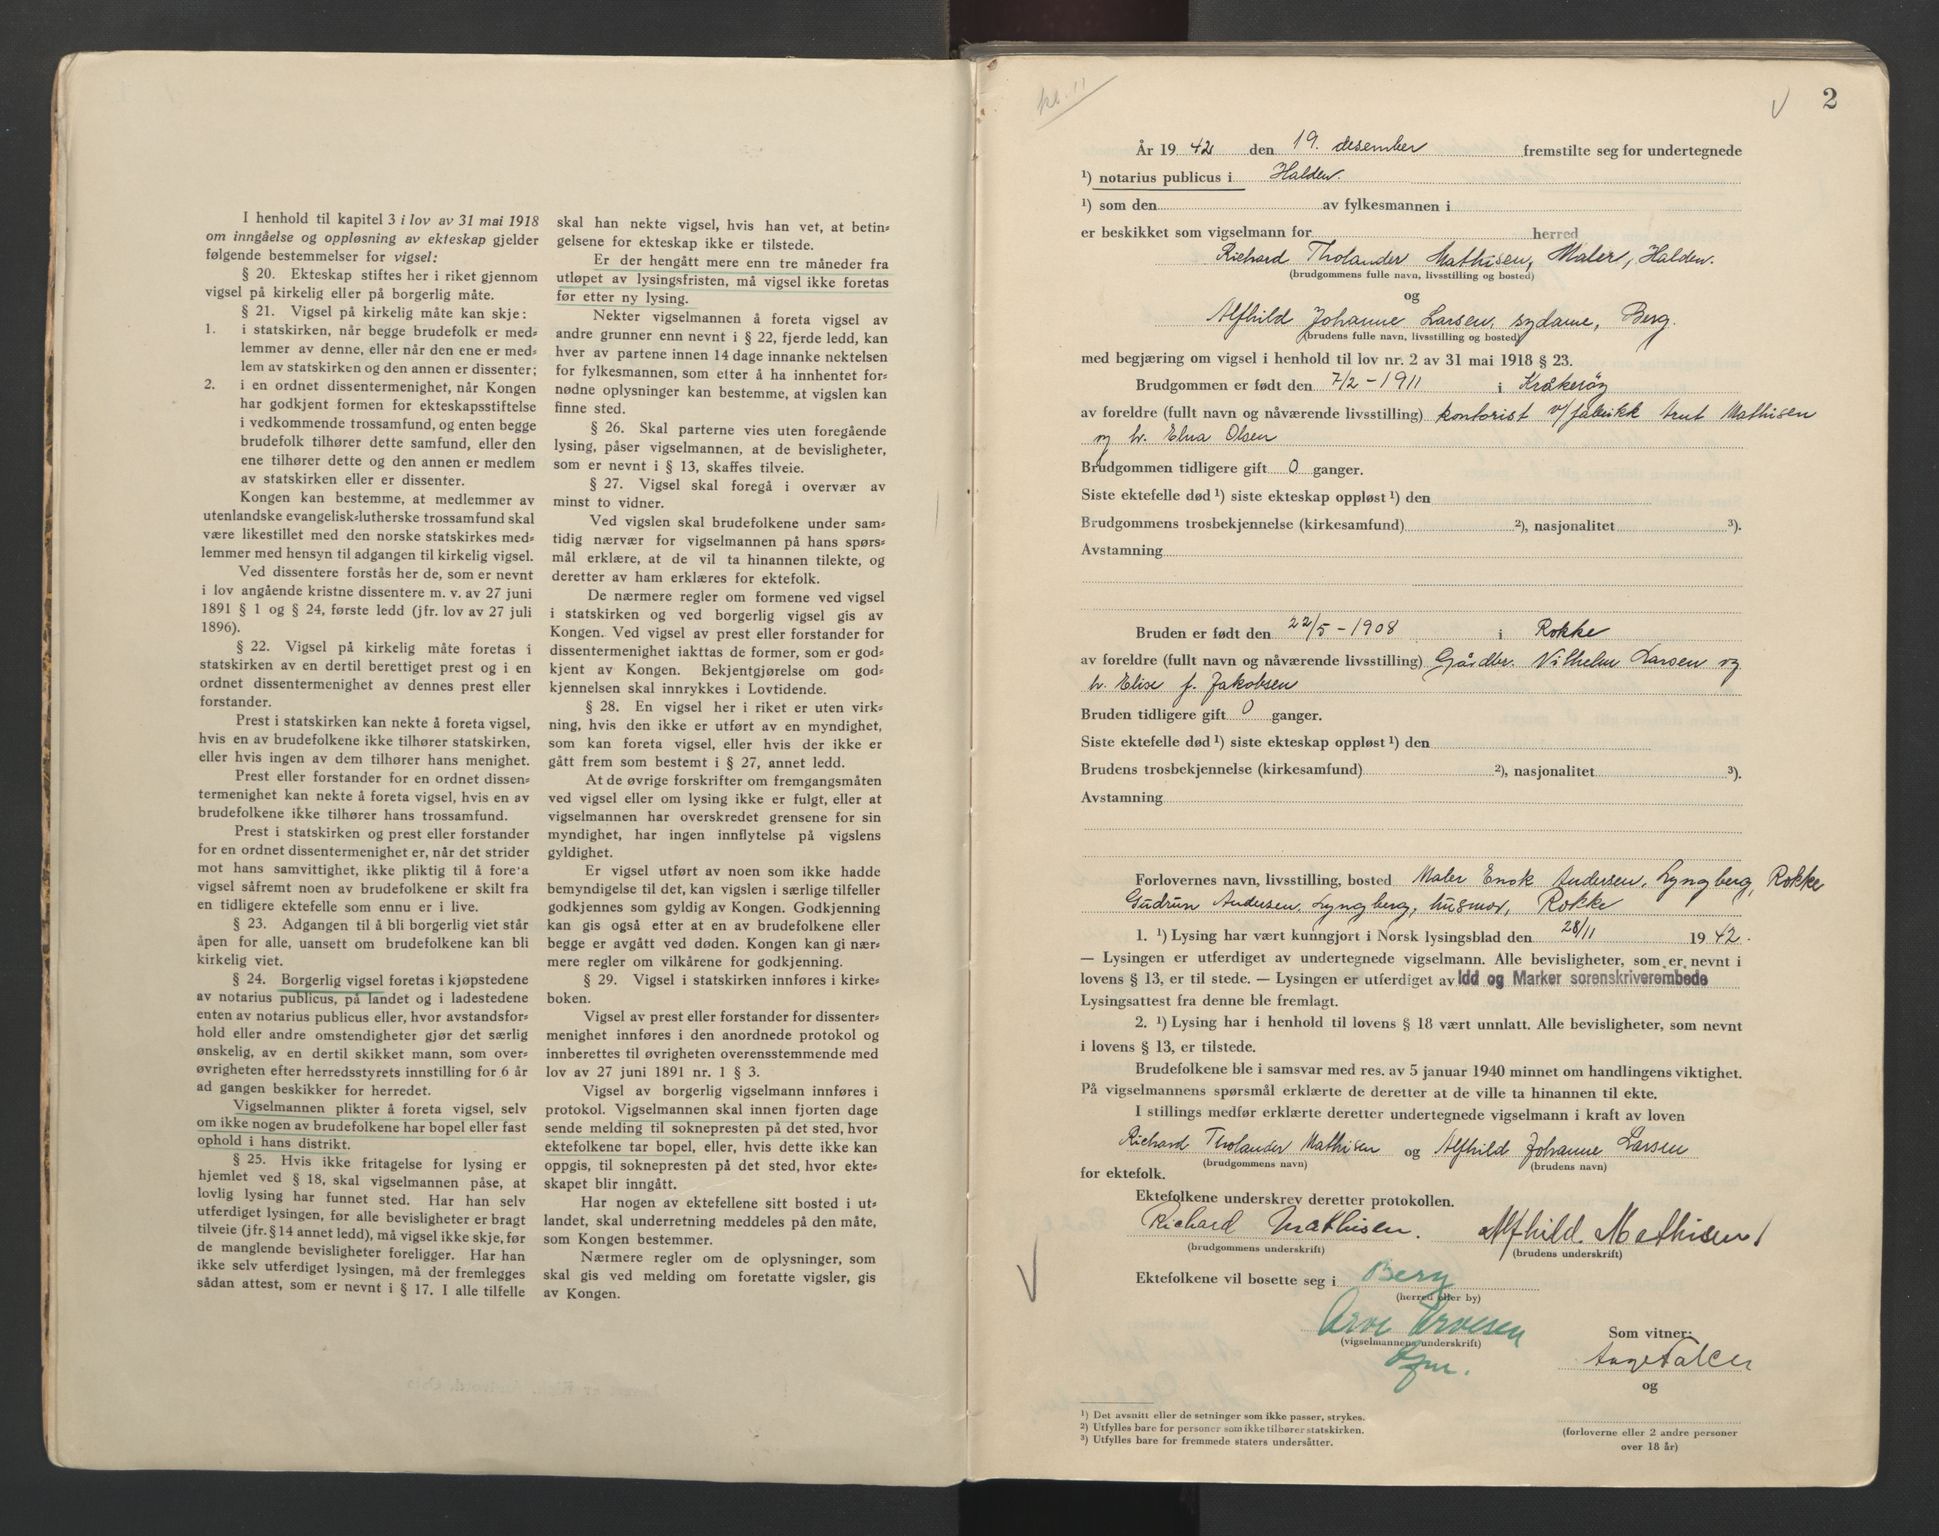 I henhold til kapitel 3 i lov av 31 mai 1918
om inngåelse og oppløsning av ekteskap gjelder
følgende bestemmelser for vigsel:
§ 20. Ekteskap stiftes her i riket gjennom
vigsel på kirkelig eller på borgerlig måte.
§ 21. Vigsel på kirkelig måte kan skje:
1. i statskirken, når begge brudefolk er med-
lemmer av denne, eller når den ene er med-
lem av statskirken og den annen er dissenter;
2. i en ordnet dissentermenighet, når Kongen
har godkjent formen for ekteskapsstiftelse
i vedkommende trossamfund, og enten begge
brudefolk tilhører dette samfund, eller den
ene tilhører dette og den annen er medlem
av statskirken eller er dissenter.
Kongen kan bestemme, at medlemmer av
utenlandske evangelisk-lutherske trossamfund skal
være likestillet med den norske statskirkes med-
lemmer med hensyn til adgangen til kirkelig vigsel.
Ved dissentere forstås her de, som er nevnt
i lov angående kristne dissentere m. v. av 27 juni
1891 § 1 og § 24, første ledd (jfr. lov av 27 juli
1896).
§ 22. Vigsel på kirkelig måte foretas i
statskirken av en dertil berettiget prest og i en
ordnet dissentermenighet av dennes prest eller
forstander.
Prest i statskirken kan nekte å foreta vigsel,
hvis en av brudefolkene ikke tilhører statskirken,
eller hvis ingen av dem tilhører hans menighet.
Prest eller forstander for en ordnet dissen-
termenighet kan nekte å foreta vigsel, hvis en av
brudefolkene ikke tilhører hans trossamfund.
Prest i statskirken og prest eller forstander
for en ordnet dissentermenighet er, når det strider
mot hans samvittighet, ikke pliktig til å fore'a
vigsel såfremt noen av brudefolkene er skilt fra
en tidligere ektefelle som ennu er i live.
§ 23. Adgangen til å bli borgerlig viet står
åpen for alle, uansett om brudefolkene kan bli
kirkelig viet.
§ 24. Borgerlig vigsel foretas i kjøpstedene
av notarius publicus, på landet og i ladestedene
enten av notarius publicus eller, hvor avstandsfor-
hold eller andre omstendigheter gjør det særlig
ønskelig, av en dertil skikket mann, som over-
øvrigheten efter herredsstyrets innstilling for 6 år
ad gangen beskikker for herredet.
Vigselmannen plikter å foreta vigsel, selv
om ikke nogen av brudefolkene har bopel eller fast
ophold i hans distrikt.
§ 25. Hvis ikke fritagelse for lysing er
hjemlet ved § 18, skal vigselmannen påse, at
lovlig lysing har funnet sted. Har han selv
utferdiget lysingen, før alle bevisligheter er bragt
tilveie (jfr. § 14 annet ledd), må vigsel ikke skje, før
de manglende bevisligheter foreligger. Har han
ikke selv utferdiget lysingen, må der fremlegges
sådan attest, som er nevnt i § 17. I alle tilfelle
skal han nekte vigsel, hvis han vet, at betin-
gelsene for ekteskap ikke er tilstede.
Er der hengått mere enn tre måneder fra
utløpet av lysingsfristen, må vigsel ikke foretas
før etter ny lysing.
Nekter vigselmannen å foreta vigsel av
andre grunner enn nevnt i § 22, fjerde ledd, kan
hver av partene innen 14 dage innanke nektelsen
for fylkesmannen, som efter å ha innhentet for-
nødne oplysninger kan bestemme, at vigslen kan
finne sted.
§ 26. Skal parterne vies uten foregående
lysing, påser vigselmannen, at de bevisligheter,
som er nevnt i § 13, skaffes tilveie.
§ 27. Vigsel skal foregå i overvær av
minst to vidner.
Ved vigslen skal brudefolkene under sam-
tidig nærvær for vigselmannen på hans spørs-
mål erklære, at de vil ta hinannen tilekte, og
deretter av ham erklæres for ektefolk.
De nærmere regler om formene ved vigsel
i statskirken og ved borgerlig vigsel gis av
Kongen. Ved vigsel av prest eller forstander for
dissentermenighet iakttas de former, som er god-
kjent av Kongen. Bekjentgjørelse om god-
kjennelsen skal innrykkes i Lovtidende.
§ 28. En vigsel her i riket er uten virk-
ning, hvis den ikke er utført av en myndighet,
som kan foreta vigsel, eller hvis der ikke er
gått frem som bestemt i § 27, annet ledd.
At de øvrige forskrifter om fremgangsmåten
ved vigsel eller om lysing ikke er fulgt, eller at
vigselmannen har overskredet grensene for sin
myndighet, har ingen innflytelse på vigslens
gyldighet.
Er vigsel utført av noen som ikke hadde
bemyndigelse til det, kan vigslen i særlige tilfeller
godkjennes som gyldig av Kongen. Godkjenning
kan gis også etter at en av brudefolkene eller
begge er avgått ved døden. Kongen kan gi nær-
mere regler om vilkårene for godkjenning.
§ 29. Vigsel i statskirken innføres i kirke-
boken.
Vigsel av prest eller forstander for dissenter-
menighet innføres i den anordnede protokol og
innberettes til øvrigheten overensstemmende med
lov av 27 juni 1891 nr. 1 § 3.
Vigsel av borgerlig vigselmann innføres i
protokol. Vigselmannen skal innen fjorten dage
sende melding til soknepresten på det sted, hvor
ektefolkene tar bopel, eller, hvis dette ikke kan
oppgis, til soknepresten på det sted, hvor ekte-
skapet blir inngått.
Har nogen av ektefellene sitt bosted i ut-
landet, skal underretning meddeles på den måte,
som Kongen bestemmer.
Nærmere regler om de oplysninger, som
skal gis ved melding om foretatte vigsler, gis
av Kongen.
kl. 11
2
År 1942 den 19. desember fremstilte seg for undertegnede
¹) notarius publicus i Halden.
¹) som den av fylkesmannen i
er beskikket som vigselmann for herred
Richard Tholander Mathisen, Maler, Halden.
(brudgommens fulle navn, livsstilling og bosted)
og
Alfhild Johanne Larsen, sydame, Berg.
(brudens fulle navn, livsstilling og bosted)
med begjæring om vigsel i henhold til lov nr. 2 av 31 mai 1918 § 23.
Brudgommen er født den 7/2 - 1911 i Kråkerøy
av foreldre (fullt navn og nåværende livsstilling) kontorist v/fabrikk Arut Mathisen
og h. Elna Olsen
Brudgommen tidligere gift 0 ganger.
Siste ektefelle død ¹) siste ekteskap oppløst ¹) den
Brudgommens trosbekjennelse (kirkesamfund) ²), nasjonalitet ³).
Avstamning
Bruden er født den 22/5 - 1908 i Rokke
av foreldre (fullt navn og nåværende livsstilling) Gårdbr. Vilhelm Larsen og
h. Elise f. Jakobsen
Bruden tidligere gift 0 ganger.
Siste ektefelle død ¹) siste ekteskap oppløst ¹) den
Brudens trosbekjennelse (kirkesamfund) ²), nasjonalitet ³).
Avstamning
Forlovernes navn, livsstilling, bosted Maler Enok Andersen, Lyngberg, Rokke
Gudrun Andersen, Lyngberg, husmor, Rokke
1. ¹) Lysing har vært kunngjort i Norsk lysingsblad den 28/11 1942.
— Lysingen er utferdiget av undertegnede vigselmann. Alle bevisligheter, som er nevnt i
lovens § 13, er til stede. — Lysingen er utferdiget av Idd og Marker sorenskriverembede
Lysingsattest fra denne ble fremlagt.
2. ¹) Lysing har i henhold til lovens § 18 vært unnlatt. Alle bevisligheter, som nevnt
i lovens § 13, er tilstede.
Brudefolkene ble i samsvar med res. av 5 januar 1940 minnet om handlingens viktighet.
På vigselmannens spørsmål erklærte de deretter at de ville ta hinannen til ekte.
I stillings medfør erklærte deretter undertegnede vigselmann i kraft av loven
Richard Tholander Mathisen og Alfhild Johanne Larsen
(brudgommens navn) (brudens navn)
for ektefolk.
Ektefolkene underskrev deretter protokollen.
Richard Mathisen. Alfhild Mathisen
(brudgommens underskrift) (brudens underskrift)
Ektefolkene vil bosette seg i Berg
(herred eller by)
Arve Arvesen
(vigselmannens underskrift)
Som vitner:
og
(forloverne eller 2 andre personer
over 18 år)
¹) Det avsnitt eller de setninger som ikke passer, strykes.
²) Utfylles bare for personer som ikke tilhører statskirken.
³) Utfylles bare for fremmede staters undersåtter.